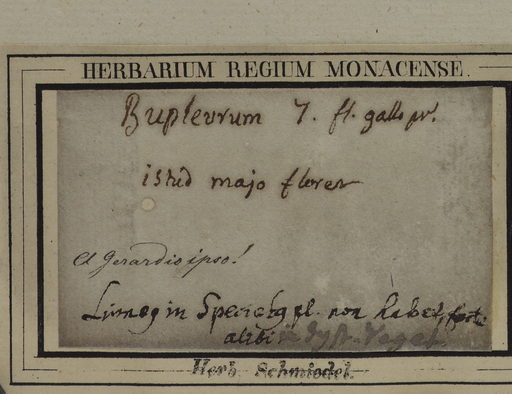 HERBARIUM REGIUM MONACENSE.
Bupleurum 7. fl. gallo pr.
istud majo florer
a Gerardio ipso!
in Specieb pl. non habet
alibi
Herb. Schmiedel.